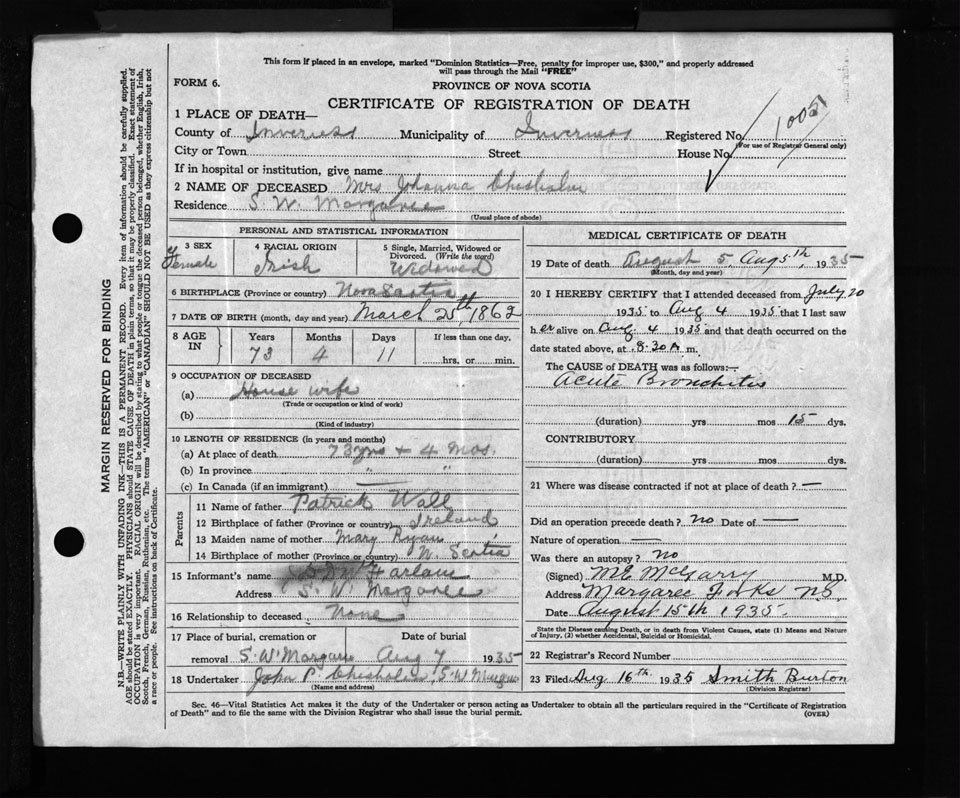 This form if placed in an envelope, marked "Dominion Statistics—Free, penalty for improper use, $300," and properly addressed
will pass through the Mail "FREE"
FORM 6.
PROVINCE OF NOVA SCOTIA
CERTIFICATE OF REGISTRATION OF DEATH
1 PLACE OF DEATH—
County of Inverness Municipality of Inverness Registered No.
(For use of Registrar General only)
City or Town Street House No.
If in hospital or institution, give name
2 NAME OF DECEASED Mrs Johanna Chisholm
Residence S. W. Margaree
(Usual place of abode)
MARGIN RESERVED FOR BINDING
N.B.—WRITE PLAINLY WITH UNFADING INK—THIS IS A PERMANENT RECORD. Every item of information should be carefully supplied.
AGE should be stated EXACTLY. PHYSICIANS should STATE CAUSE OF DEATH in plain terms, so that it may be properly classified. Exact statement of
OCCUPATION is very important. RACIAL ORIGIN will be described by stating to what people or tongue the deceased person belonged, whether English, Irish,
Scotch, French, German, Russian, Ruthenian, etc. The terms "AMERICAN" or "CANADIAN" SHOULD NOT BE USED as they express citizenship but not
a race or people. See instructions on back of Certificate.
PERSONAL AND STATISTICAL INFORMATION
3 SEX
Female
4 RACIAL ORIGIN
Irish
5 Single, Married, Widowed or
Divorced. (Write the word)
Widowed
6 BIRTHPLACE (Province or country) Nova Scotia
7 DATE OF BIRTH (month, day and year) March 25th, 1862
8 AGE IN
Years Months Days If less than one day,
73 4 11 hrs. or min.
9 OCCUPATION OF DECEASED
(a) House wife
(Trade or occupation or kind of work)
(b)
(Kind of industry)
10 LENGTH OF RESIDENCE (in years and months)
(a) At place of death 73 yrs + 4 mos.
(b) In province " "
(c) In Canada (if an immigrant) —
Parents
11 Name of father Patrick Wall
12 Birthplace of father (Province or country) Ireland
13 Maiden name of mother Mary Ryan
14 Birthplace of mother (Province or country) N. Scotia
15 Informant's name Farlane
Address S. W. Margaree
16 Relationship to deceased None
17 Place of burial, cremation or Date of burial
removal S. W. Margaree Aug 7 1935
18 Undertaker John P. Chisholm, S. W. Margaree
(Name and address)
MEDICAL CERTIFICATE OF DEATH
19 Date of death August 5, Aug 5th, 1935
(Month, day and year)
20 I HEREBY CERTIFY that I attended deceased from July 20
1935 to Aug 4 1935 that I last saw
her alive on Aug. 4 1935 and that death occurred on the
date stated above, at 8.30 A m.
The CAUSE of DEATH was as follows:—
Acute Bronchitis
(duration) yrs mos 15 dys.
CONTRIBUTORY
(duration) yrs mos dys.
21 Where was disease contracted if not at place of death? —
Did an operation precede death? no Date of —
Nature of operation —
Was there an autopsy? no
(Signed) M E McGarry M.D.
Address Margaree Forks N.S.
Date August 15th 1935.
State the Disease causing Death, or in death from Violent Causes, state (1) Means and Nature
of Injury, (2) whether Accidental, Suicidal or Homicidal.
22 Registrar's Record Number
23 Filed Aug 16th 1935 Smith Burton
(Division Registrar)
Sec. 46—Vital Statistics Act makes it the duty of the Undertaker or person acting as Undertaker to obtain all the particulars required in the "Certificate of Registration
of Death" and to file the same with the Division Registrar who shall issue the burial permit.
(OVER)